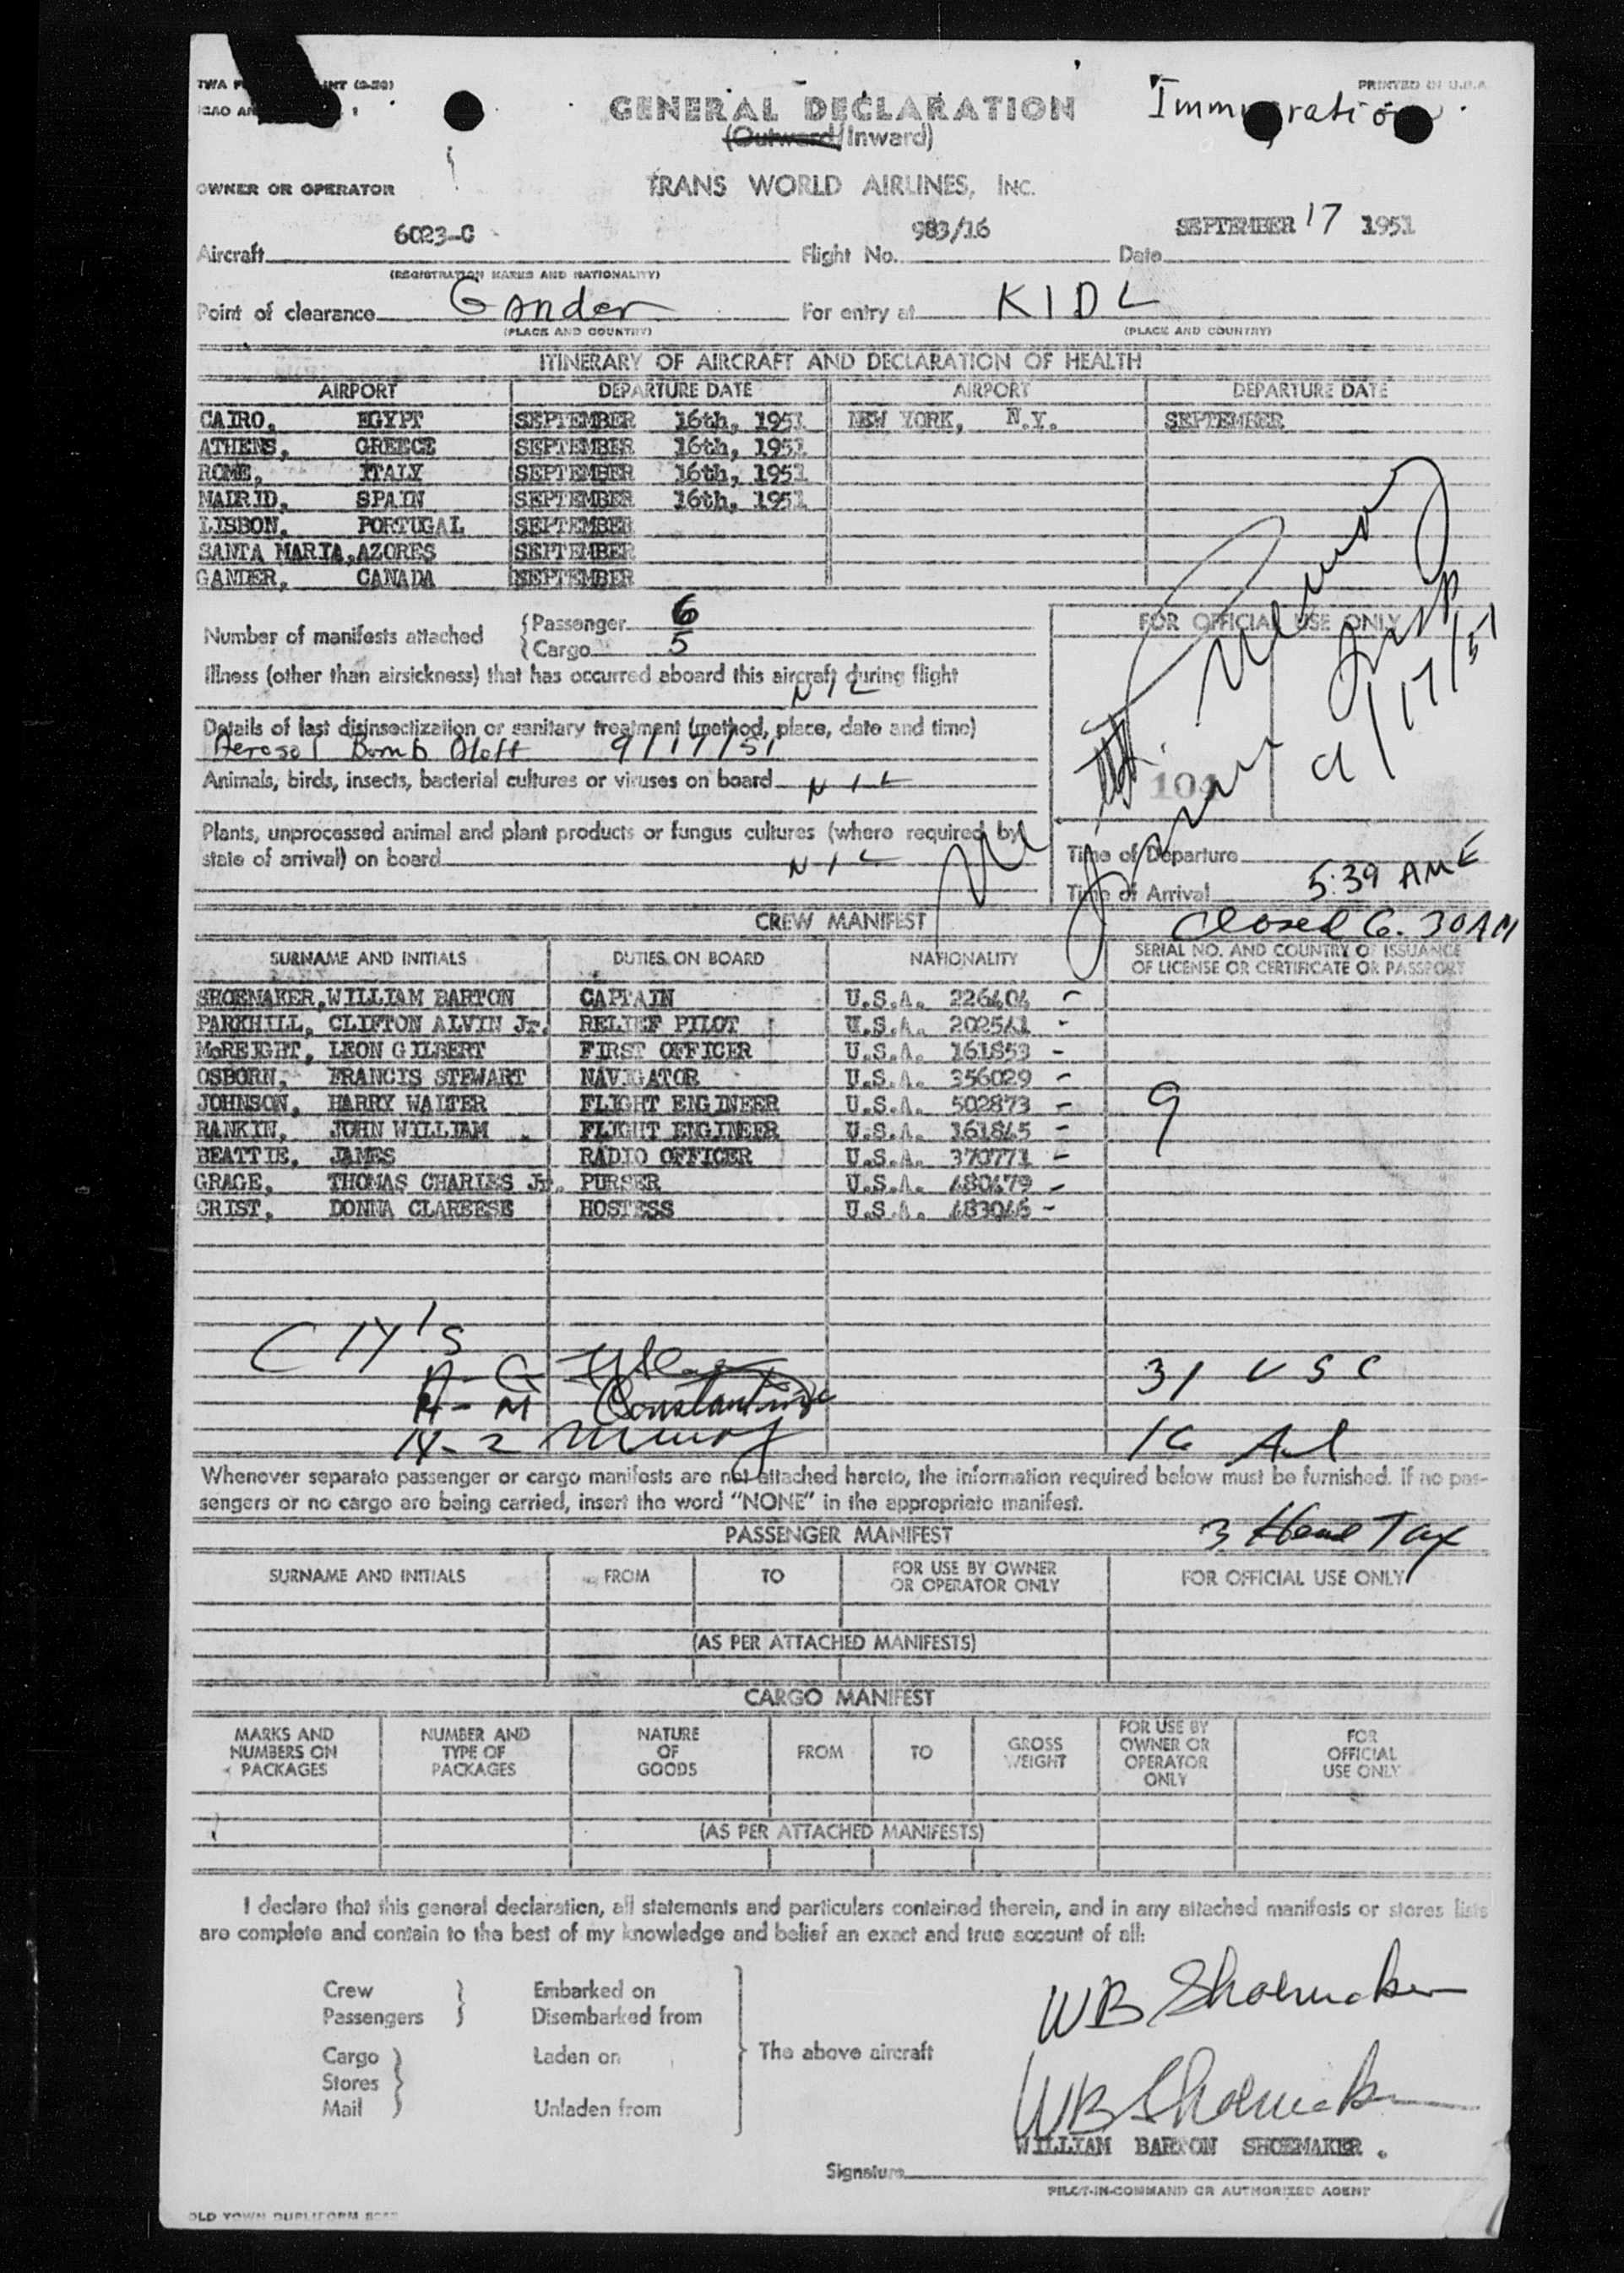 GENERAL DECLARATION
Immigration
PRINTED IN U.S.A
(Outward/Inward)
OWNER OR OPERATOR TRANS WORLD AIRLINES, INC.
Aircraft 6023-C Flight No. 983/16 Date SEPTEMBER 17 1951
(REGISTRATION MARKS AND NATIONALITY)
Point of clearance Gander For entry at KIDL
(PLACE AND COUNTRY) (PLACE AND COUNTRY)
ITINERARY OF AIRCRAFT AND DECLARATION OF HEALTH
AIRPORT DEPARTURE DATE AIRPORT DEPARTURE DATE
CAIRO, EGYPT SEPTEMBER 16th, 1951 NEW YORK, N.Y. SEPTEMBER
ATHENS, GREECE SEPTEMBER 16th, 1951
ROME, ITALY SEPTEMBER 16th, 1951
MADRID, SPAIN SEPTEMBER 16th, 1951
LISBON, PORTUGAL SEPTEMBER
SANTA MARIA, AZORES SEPTEMBER
GANDER, CANADA SEPTEMBER
Number of manifests attached
Passenger 6
Cargo 5
FOR OFFICIAL USE ONLY
Illness (other than airsickness) that has occurred aboard this aircraft during flight
NIL
Details of last disinsectization or sanitary treatment (method, place, date and time)
Aerosol Bomb Aloft 9/17/51
9/17/51
Animals, birds, insects, bacterial cultures or viruses on board NIL
Plants, unprocessed animal and plant products or fungus cultures (where required by
state of arrival) on board NIL
Time of Departure
Time of Arrival 5:39 AM E
Closed 6.30AM
CREW MANIFEST
SURNAME AND INITIALS DUTIES ON BOARD NATIONALITY SERIAL NO. AND COUNTRY OF ISSUANCE
OF LICENSE OR CERTIFICATE OR PASSPORT
SHOEMAKER, WILLIAM BARTON CAPTAIN U.S.A. 226404 -
PARKHILL, CLIFTON ALVIN Jr. RELIEF PILOT U.S.A. 202541 -
McREIGHT, LEON GILBERT FIRST OFFICER U.S.A. 161853 -
OSBORN, FRANCIS STEWART NAVIGATOR U.S.A. 356029 -
JOHNSON, HARRY WALTER FLIGHT ENGINEER U.S.A. 502873 - 9
RANKIN, JOHN WILLIAM FLIGHT ENGINEER U.S.A. 161845 -
BEATTIE, JAMES RADIO OFFICER U.S.A. 370771 -
GRAGE, THOMAS CHARLES Jr. PURSER U.S.A. 480479 -
CRIST, DONNA CLAREESE HOSTESS U.S.A. 483046 -
A-G 31 USC
H-M Constantine
N-Z
Whenever separate passenger or cargo manifests are not attached hereto, the information required below must be furnished. If no pas-
sengers or no cargo are being carried, insert the word "NONE" in the appropriate manifest.
PASSENGER MANIFEST 3 Head Tax
SURNAME AND INITIALS FROM TO FOR USE BY OWNER
OR OPERATOR ONLY FOR OFFICIAL USE ONLY
(AS PER ATTACHED MANIFESTS)
CARGO MANIFEST
MARKS AND
NUMBERS ON
PACKAGES NUMBER AND
TYPE OF
PACKAGES NATURE
OF
GOODS FROM TO GROSS
WEIGHT FOR USE BY
OWNER OR
OPERATOR
ONLY FOR
OFFICIAL
USE ONLY
(AS PER ATTACHED MANIFESTS)
I declare that this general declaration, all statements and particulars contained therein, and in any attached manifests or stores lists
are complete and contain to the best of my knowledge and belief an exact and true account of all:
Crew Embarked on
Passengers Disembarked from
Cargo Laden on The above aircraft
Stores
Mail Unladen from
WB Shoemaker
WB Shoemaker
WILLIAM BARTON SHOEMAKER.
Signature
PILOT-IN-COMMAND OR AUTHORIZED AGENT